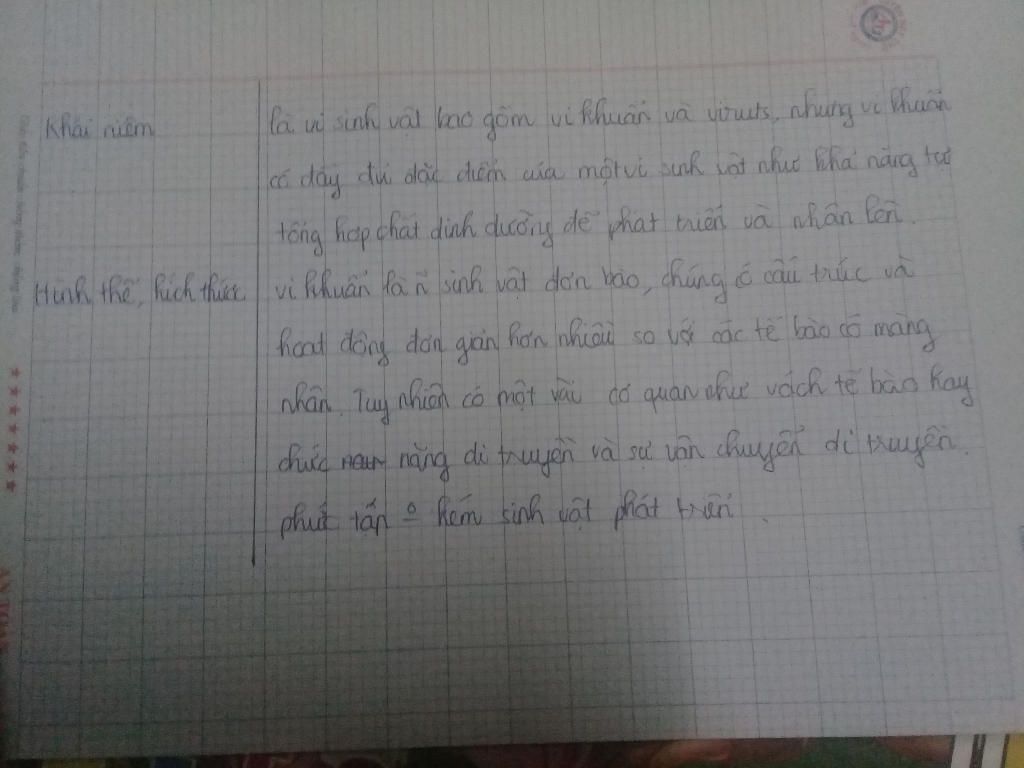 Khái niệm
là vi sinh vật bao gồm vi khuẩn và viruts, nhưng vi khuẩn
có đầy đủ đặc điểm của một vi sinh vật như khả năng tự
tổng hợp chất dinh dưỡng để phát triển và nhân lên.
Hình thể, kích thước
vi khuẩn là sinh vật đơn bào, chúng có cấu trúc và
hoạt động đơn giản hơn nhiều so với các tế bào có màng
nhân. Tuy nhiên có một vài cơ quan như vách tế bào hay
chức năng di truyền và sự vận chuyển di truyền.
phức tấp kém sinh vật phát triển.